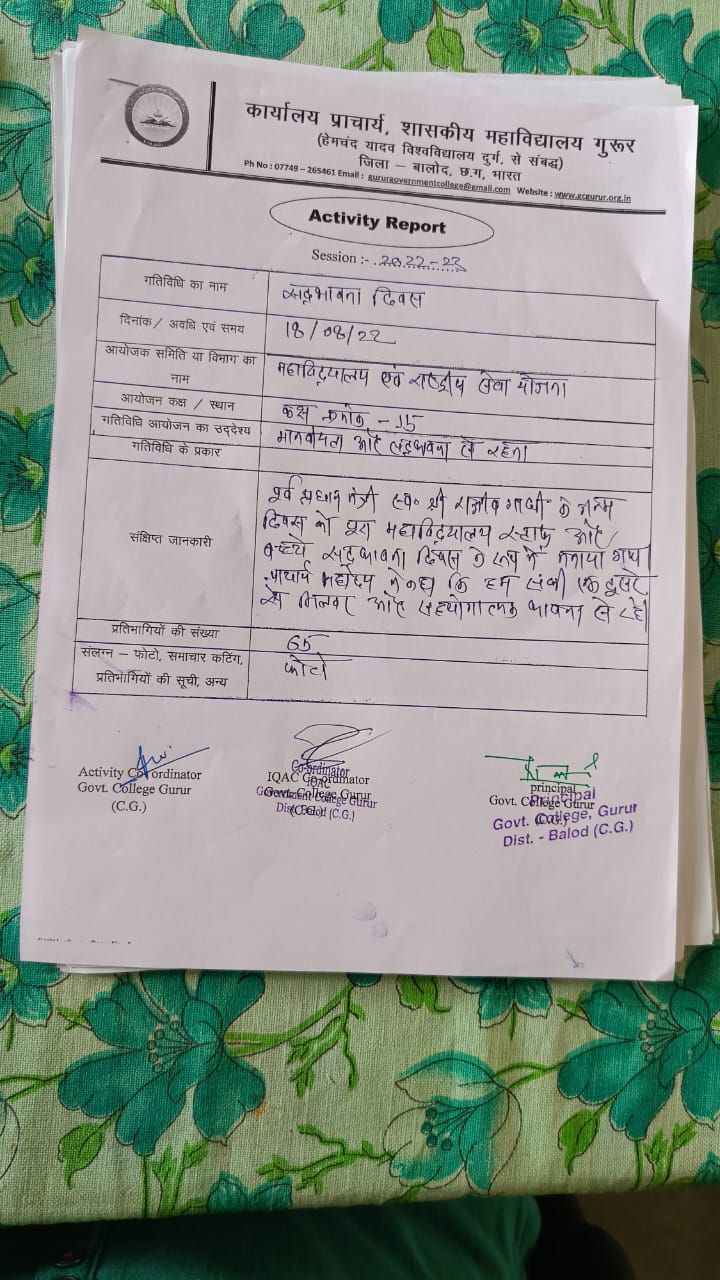 कार्यालय प्राचार्य, शासकीय महाविद्यालय गुरूर
(हेमचंद यादव विश्वविद्यालय दुर्ग, से संबद्ध)
जिला – बालोद, छ.ग, भारत
Ph No : 07749 – 265461 Email : gururgovernmentcollege@gmail.com Website : www.gcgurur.org.in
Activity Report
Session :- 2022-23
गतिविधि का नाम
सद्भावना दिवस
दिनांक/ अवधि एवं समय
18/08/22
आयोजक समिति या विभाग का
नाम
महाविद्यालय एवं राष्ट्रीय सेवा योजना
आयोजन कक्ष / स्थान
कक्ष क्रमांक - 15
गतिविधि आयोजन का उद्देश्य
मानवीयता और सद्भावना से रहना
गतिविधि के प्रकार
संक्षिप्त जानकारी
पूर्व प्रधान मंत्री स्व० श्री राजीव गांधी के जन्म
दिवस को पूरा महाविद्यालय स्टाफ और
बच्चे सद्भावना दिवस के रूप में मनाया गया
प्राचार्य महोदय ने कहा कि हम सभी एक दूसरे
से मिलकर और सहयोगात्मक भावना से रहे
प्रतिभागियों की संख्या
65
संलग्न – फोटो, समाचार कटिंग,
प्रतिभागियों की सूची, अन्य
फोटो
Activity Co-ordinator
Govt. College Gurur
(C.G.)
Co-ordinator
IQAC
Government College Gurur
Dist. Balod (C.G.)
IQAC Co-ordinator
Govt. College Gurur
(C.G.)
principal
Govt. College Gurur
(C.G.)
Principal
Govt. College, Gurur
Dist. - Balod (C.G.)